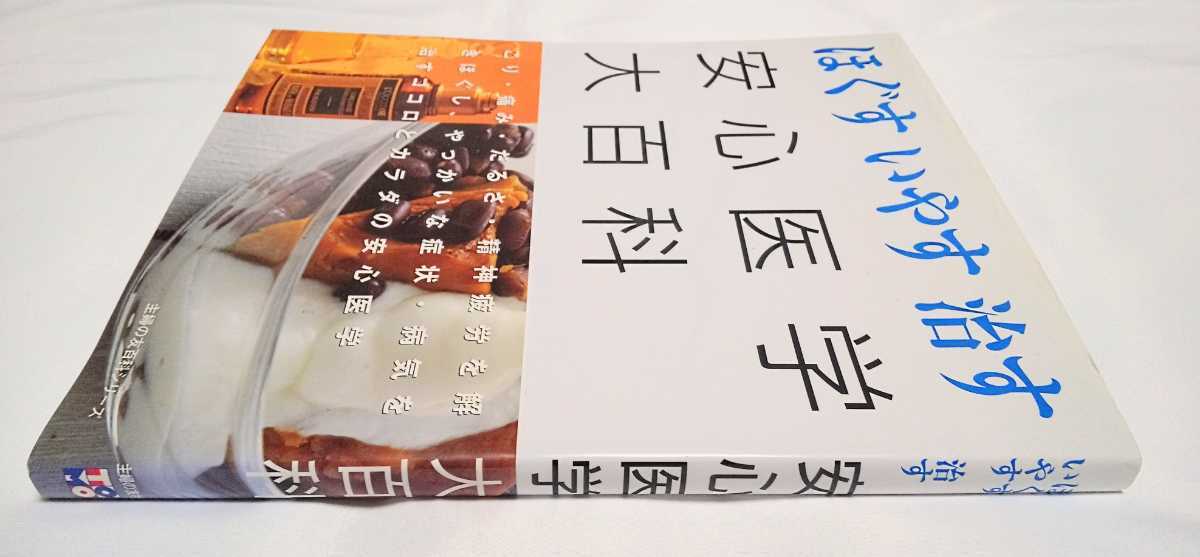 ほぐす いやす 治す
安心医学
大百科
こり・痛み・だるさ・精神疲労を解
きほぐし、やっかいな症状・病気を
治すココロとカラダの安心医学
主婦の友百科シリーズ
ほぐす
いやす
治す
安心医学
大百科
主婦の友
TO
MO